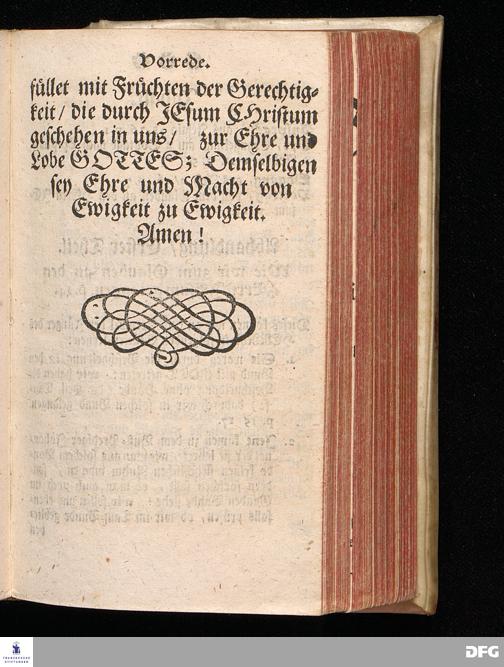 Vorrede.
füllet mit Früchten der Gerechtig-
keit/ die durch JEsum CHristum
geschehen in uns/ zur Ehre und
Lobe GOTTES; Demselbigen
sey Ehre und Macht von
Ewigkeit zu Ewigkeit.
Amen!
FRANCKESCHE
STIFTUNGEN
DFG